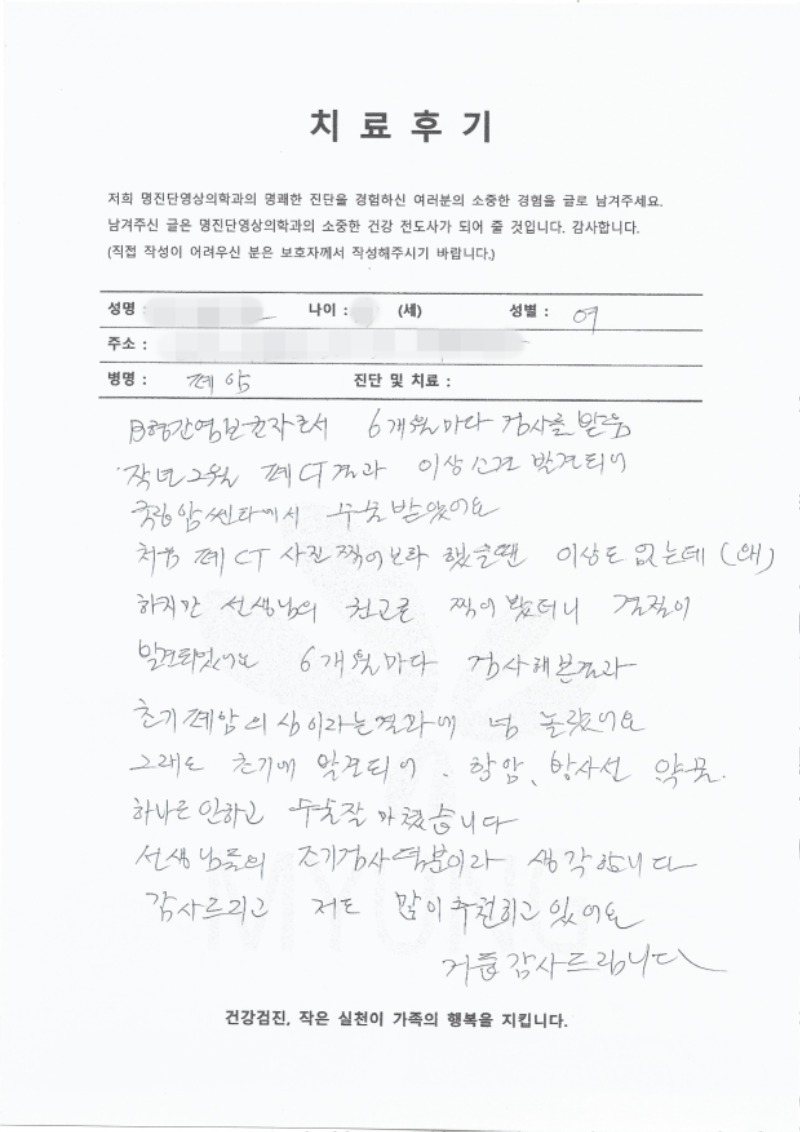 치료후기
저희 명진단영상의학과의 명쾌한 진단을 경험하신 여러분의 소중한 경험을 글로 남겨주세요.
남겨주신 글은 명진단영상의학과의 소중한 건강 전도사가 되어 줄 것입니다. 감사합니다.
(직접 작성이 어려우신 분은 보호자께서 작성해주시기 바랍니다.)
성명 : 나이 : (세) 성별 : 여
주소 :
병명 : 폐암 진단 및 치료 :
B형간염보균자로서 6개월마다 검사를 받음
작년 2월 폐CT결과 이상소견 발견되어
국립암쎈타에서 수술받았어요
처음 폐CT 사진찍어보라 했을땐 이상도 없는데 (왜)
하지만 선생님의 권고로 찍어봤더니 결절이
발견되었어요 6개월마다 검사해본결과
초기폐암의심이라는결과에 넘 놀랐어요
그래도 초기에 발견되어. 항암, 방사선 약물.
하나도 안하고 수술잘 마쳤습니다
선생님들의 조기검사덕분이라 생각합니다
감사드리고 저도 많이추천하고 있어요
거듭감사드립니다
MYUNG
건강검진, 작은 실천이 가족의 행복을 지킵니다.